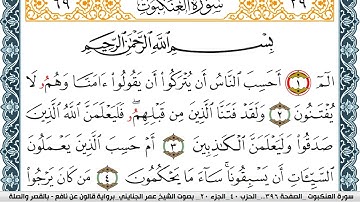 ٦٩ سورة العنكبوت ٢٩
بِسْمِ اللَّهِ الرَّحْمَٰنِ الرَّحِيمِ
أَلَمِّ ١ أَحَسِبَ النَّاسُ أَن يُتْرَكُوا أَن يَقُولُوا ءَامَنَّا وَهُمُۥ لَا
يُفْتَنُونَ ٢ وَلَقَدْ فَتَنَّا الَّذِينَ مِن قَبْلِهِمُۥ فَلَيَعْلَمَنَّ اللَّهُ الَّذِينَ
صَدَقُوا وَلَيَعْلَمَنَّ الْكَٰذِبِينَ ٣ أَمْ حَسِبَ الَّذِينَ يَعْمَلُونَ
السَّيِّـَٔاتِ أَن يَسْبِقُونَا سَآءَ مَا يَحْكُمُونَ ٤ مَن كَانَ يَرْجُوا
سورة العنكبوت ..الصفحة ٣٩٦.. الحزب ٤٠ الجزء ٢٠ .. بصوت الشيخ عمر الجنايني .برواية قالون عن نافع - بالقصر والصلة